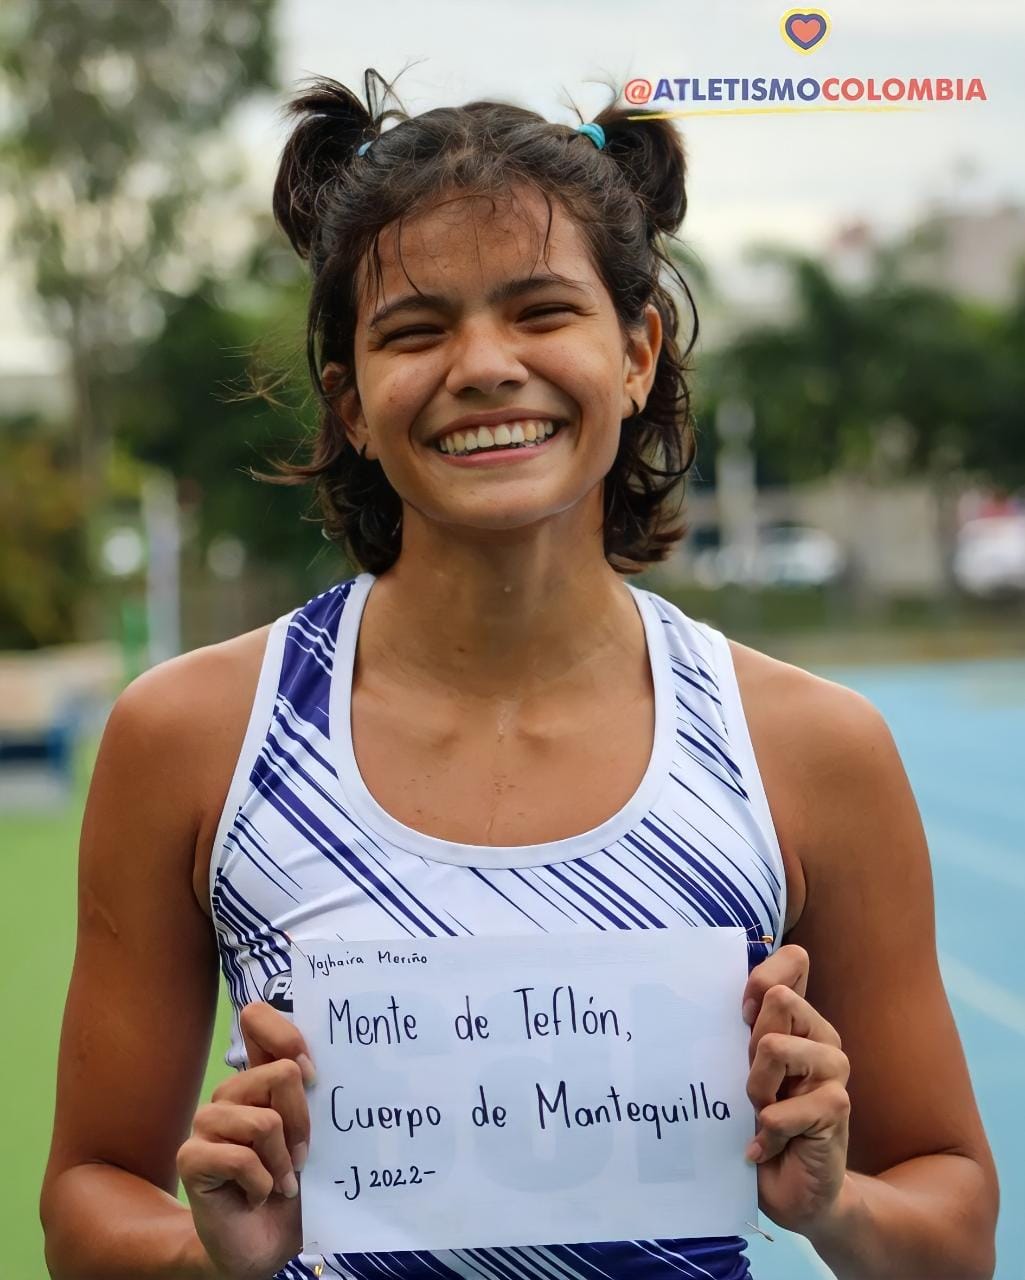 @ATLETISMOCOLOMBIA
Yajhaira Meriño
Mente de Teflón,
Cuerpo de Mantequilla
-J 2022-